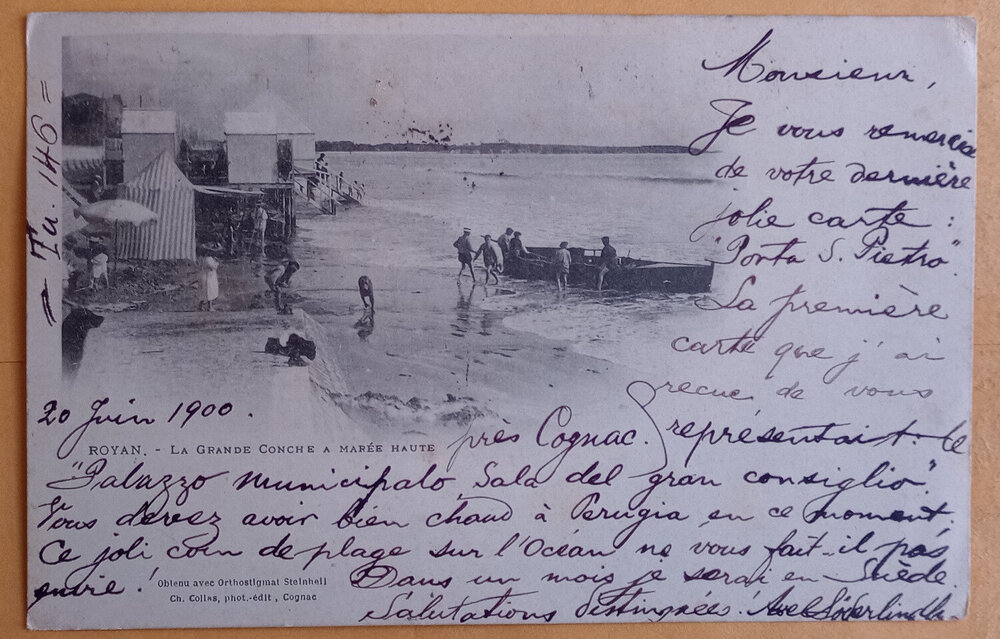 = Iu. 146 =
Monsieur,
Je vous remercie
de votre dernière
jolie carte :
"Porta S. Pietro".
La première
carte que j'ai
reçue de vous
représentait: le
"Palazzo municipalo, Sala del gran consiglio".
Vous devez avoir bien chaud à Perugia en ce moment.
Ce joli coin de plage sur l'Océan ne vous fait-il pas
envie!
Dans un mois je serai en Suède.
Salutations distinguées! Axel Söderlindh
20 Juin 1900.
ROYAN. - LA GRANDE CONCHE A MARÉE HAUTE
près Cognac.
Obtenu avec Orthostigmat Steinheil
Ch. Collas, phot.-édit, Cognac